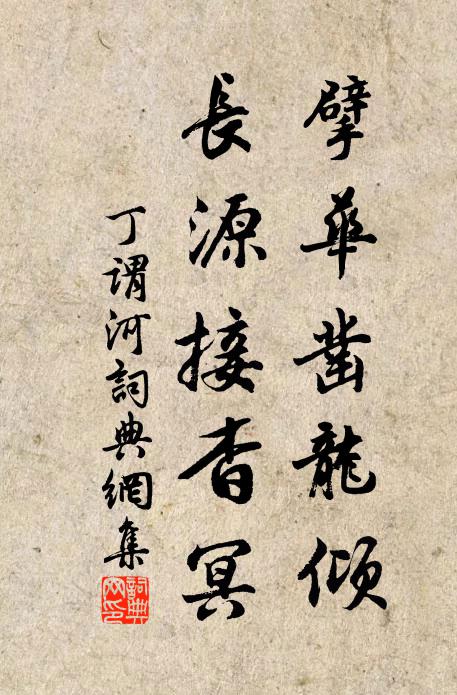 擘華凿龍傾
長源接杳冥
丁謂河詞典網集
詞典网印